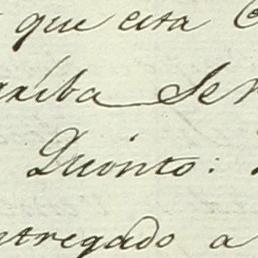 que esta
arriba Se
Quinto:
ntregado a